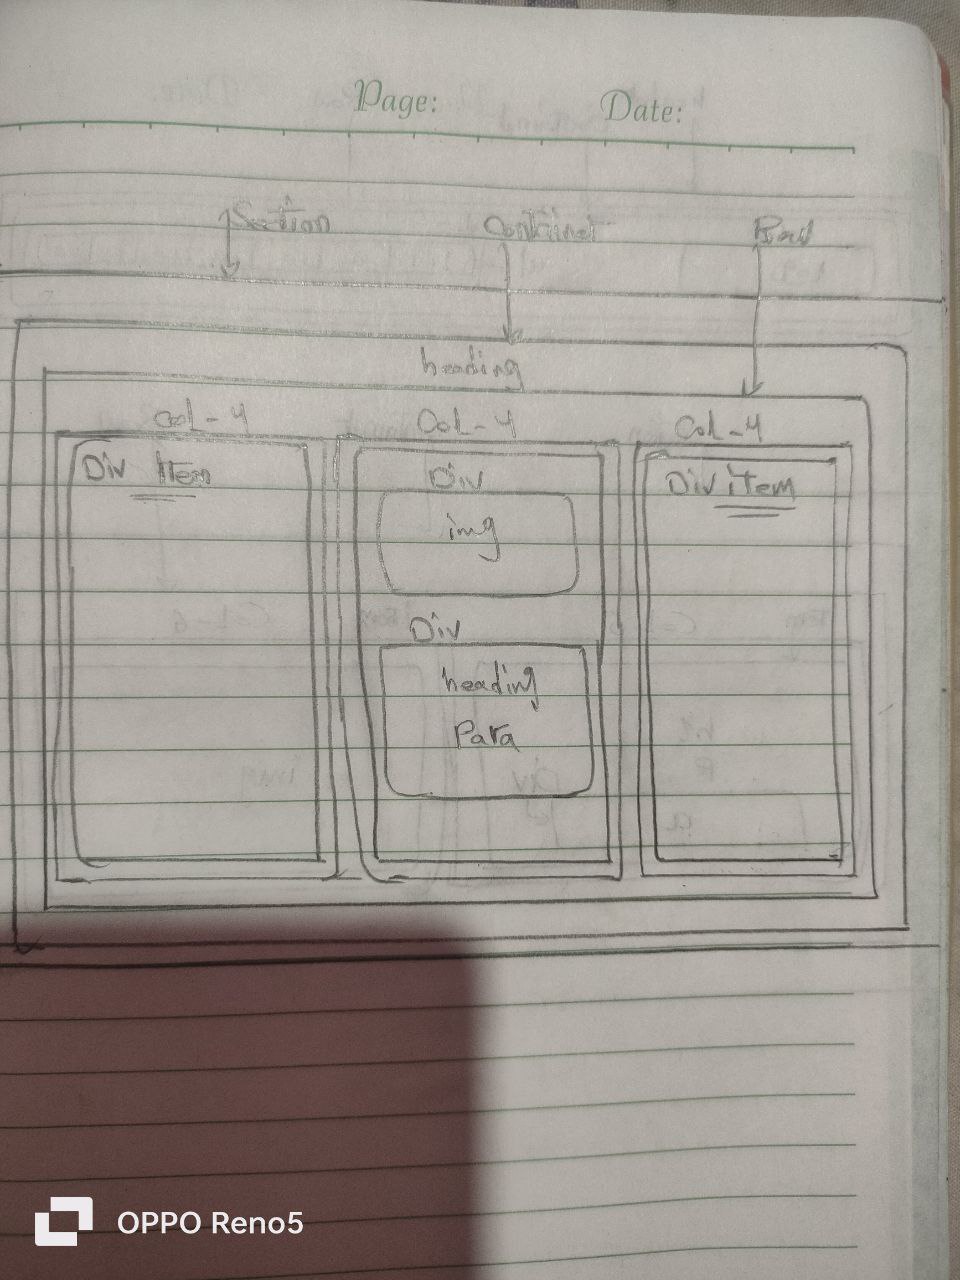 Page: Date:
Section Container Row
heading
Col-4 Col-4 Col-4
Div Item Div Div item
img
Div
heading
Para
OPPO Reno5